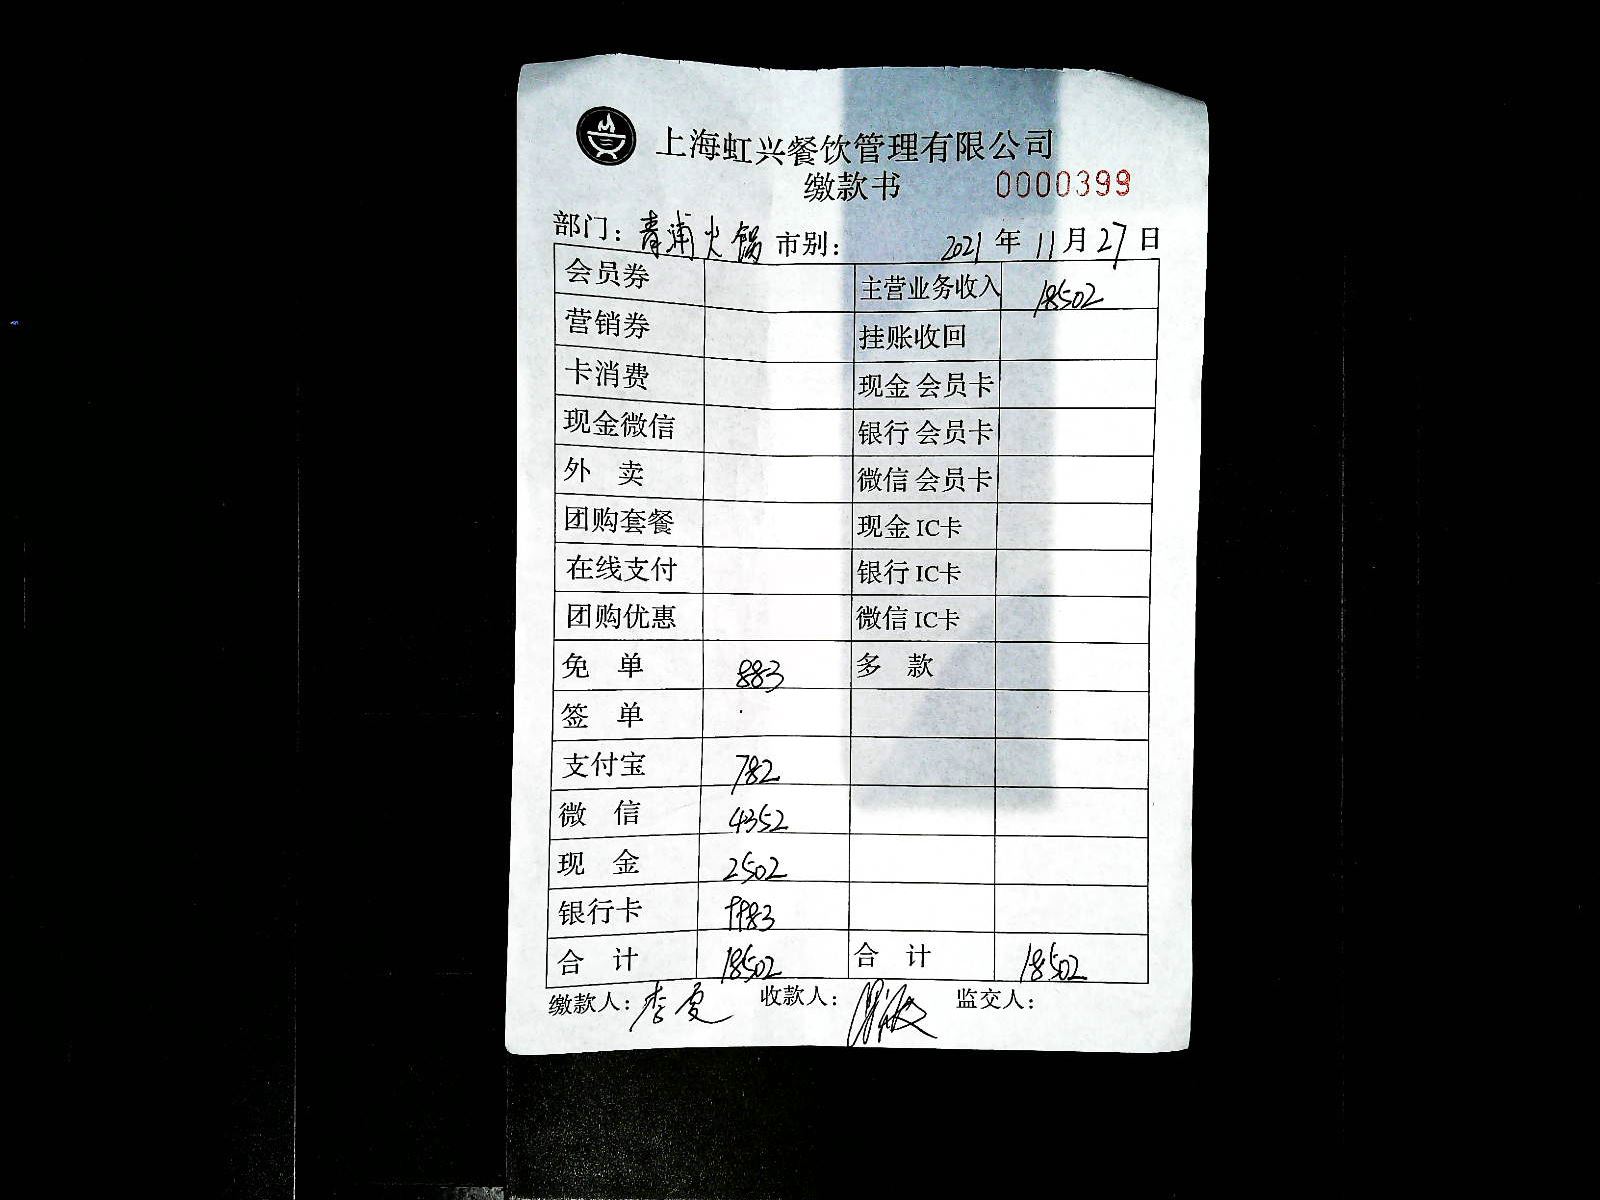 上海虹兴餐饮管理有限公司
缴款书 0000399
部门：青浦火锅 市别： 2021 年 11 月 27 日
会员券 主营业务收入 18502
营销券 挂账收回
卡消费 现金 会员卡
现金微信 银行 会员卡
外 卖 微信 会员卡
团购套餐 现金 IC卡
在线支付 银行 IC卡
团购优惠 微信 IC卡
免 单 883 多 款
签 单
支付宝 782
微 信 4352
现 金 2502
银行卡 9983
合 计 18502 合 计 18502
缴款人：李夏 收款人： 监交人：